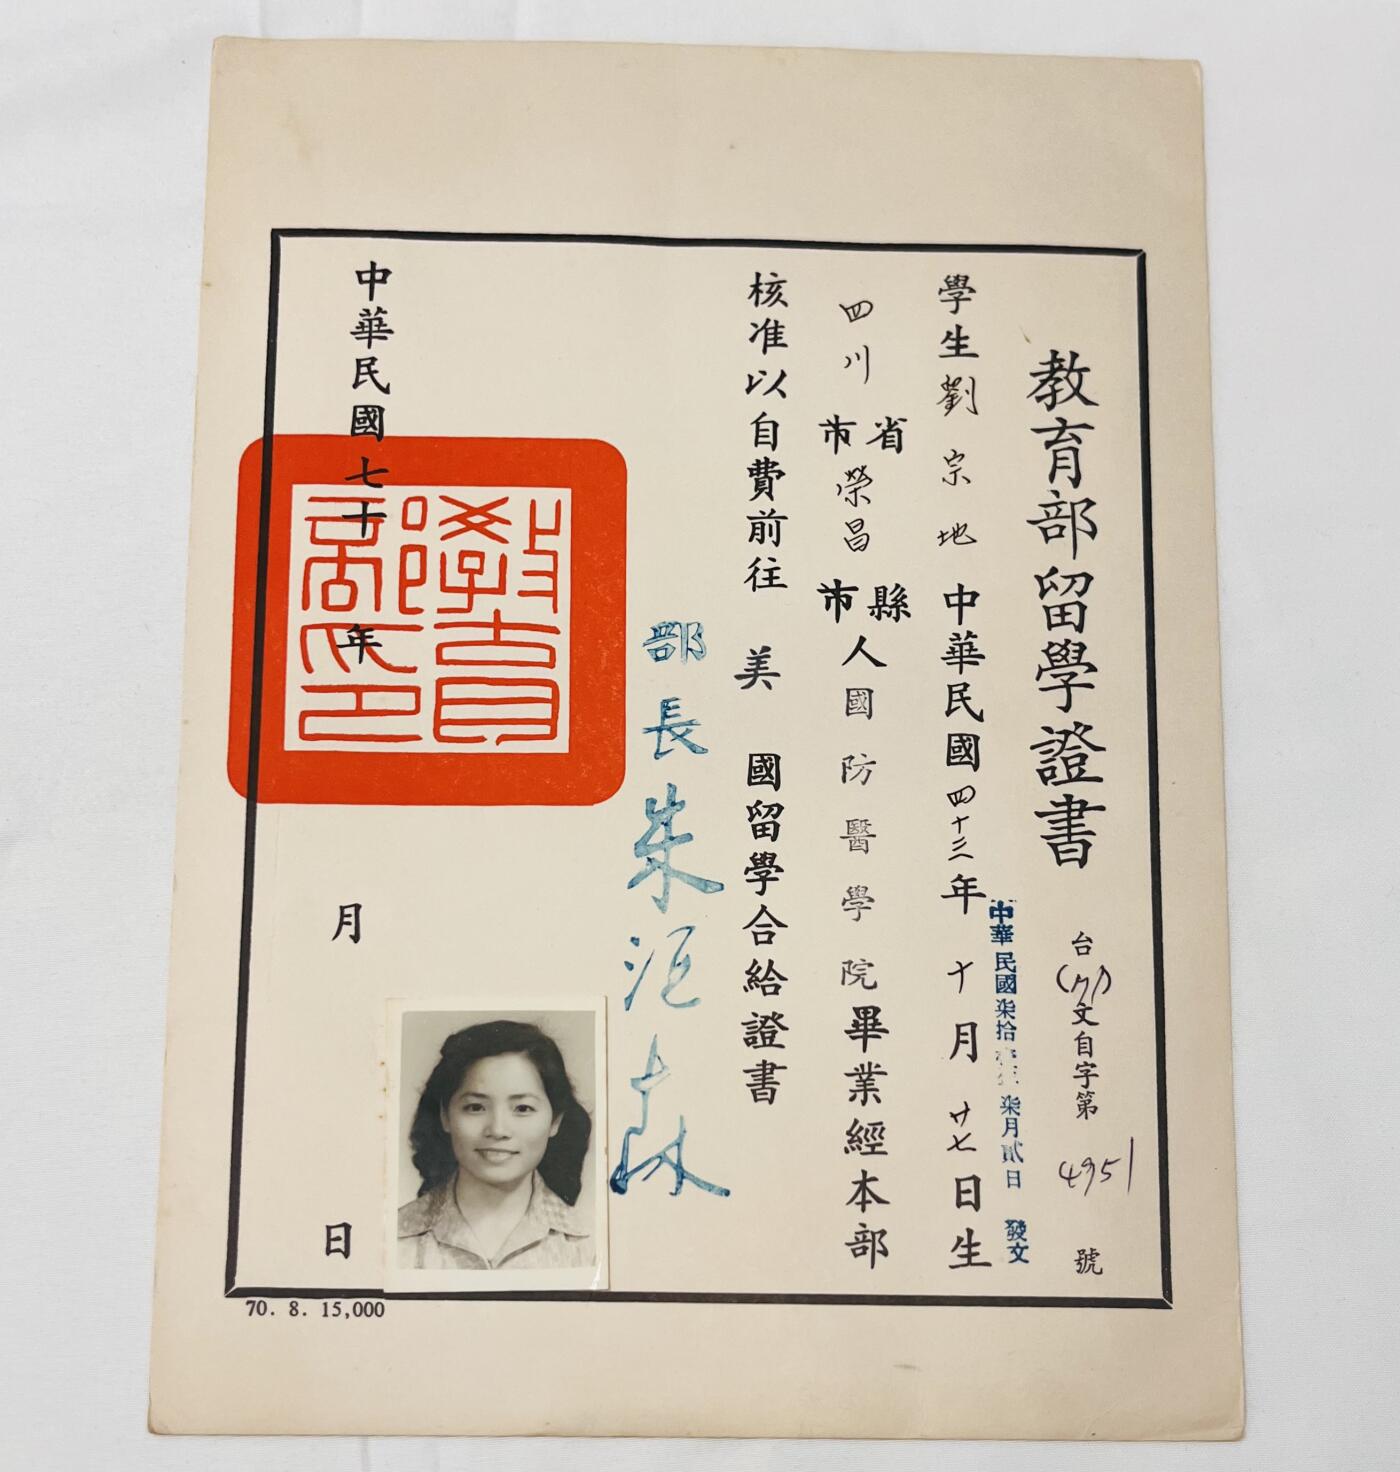 教育部留學證書
台(71)文自字第 4951 號
中華民國柒拾壹年柒月貳日 發文
學生劉宗地中華民國四十三年十月廿七日生
四川省市榮昌縣市人國防醫學院畢業經本部
核准以自費前往 美 國留學合給證書
部長朱滙森
中華民國七十 年 月 日
教育部印
70. 8. 15,000